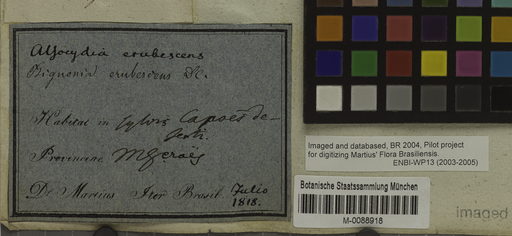 Alsocydia erubescens
Bignonia erubescens DC.
Habitat in sylvis Capoes de-
Provinciae MGeraës
Dr. Martius Iter Brasil. Julio
1818.
Imaged and databased, BR 2004, Pilot project
for digitizing Martius' Flora Brasiliensis.
ENBI-WP13 (2003-2005)
Botanische Staatssammlung München
M-0088918
imaged